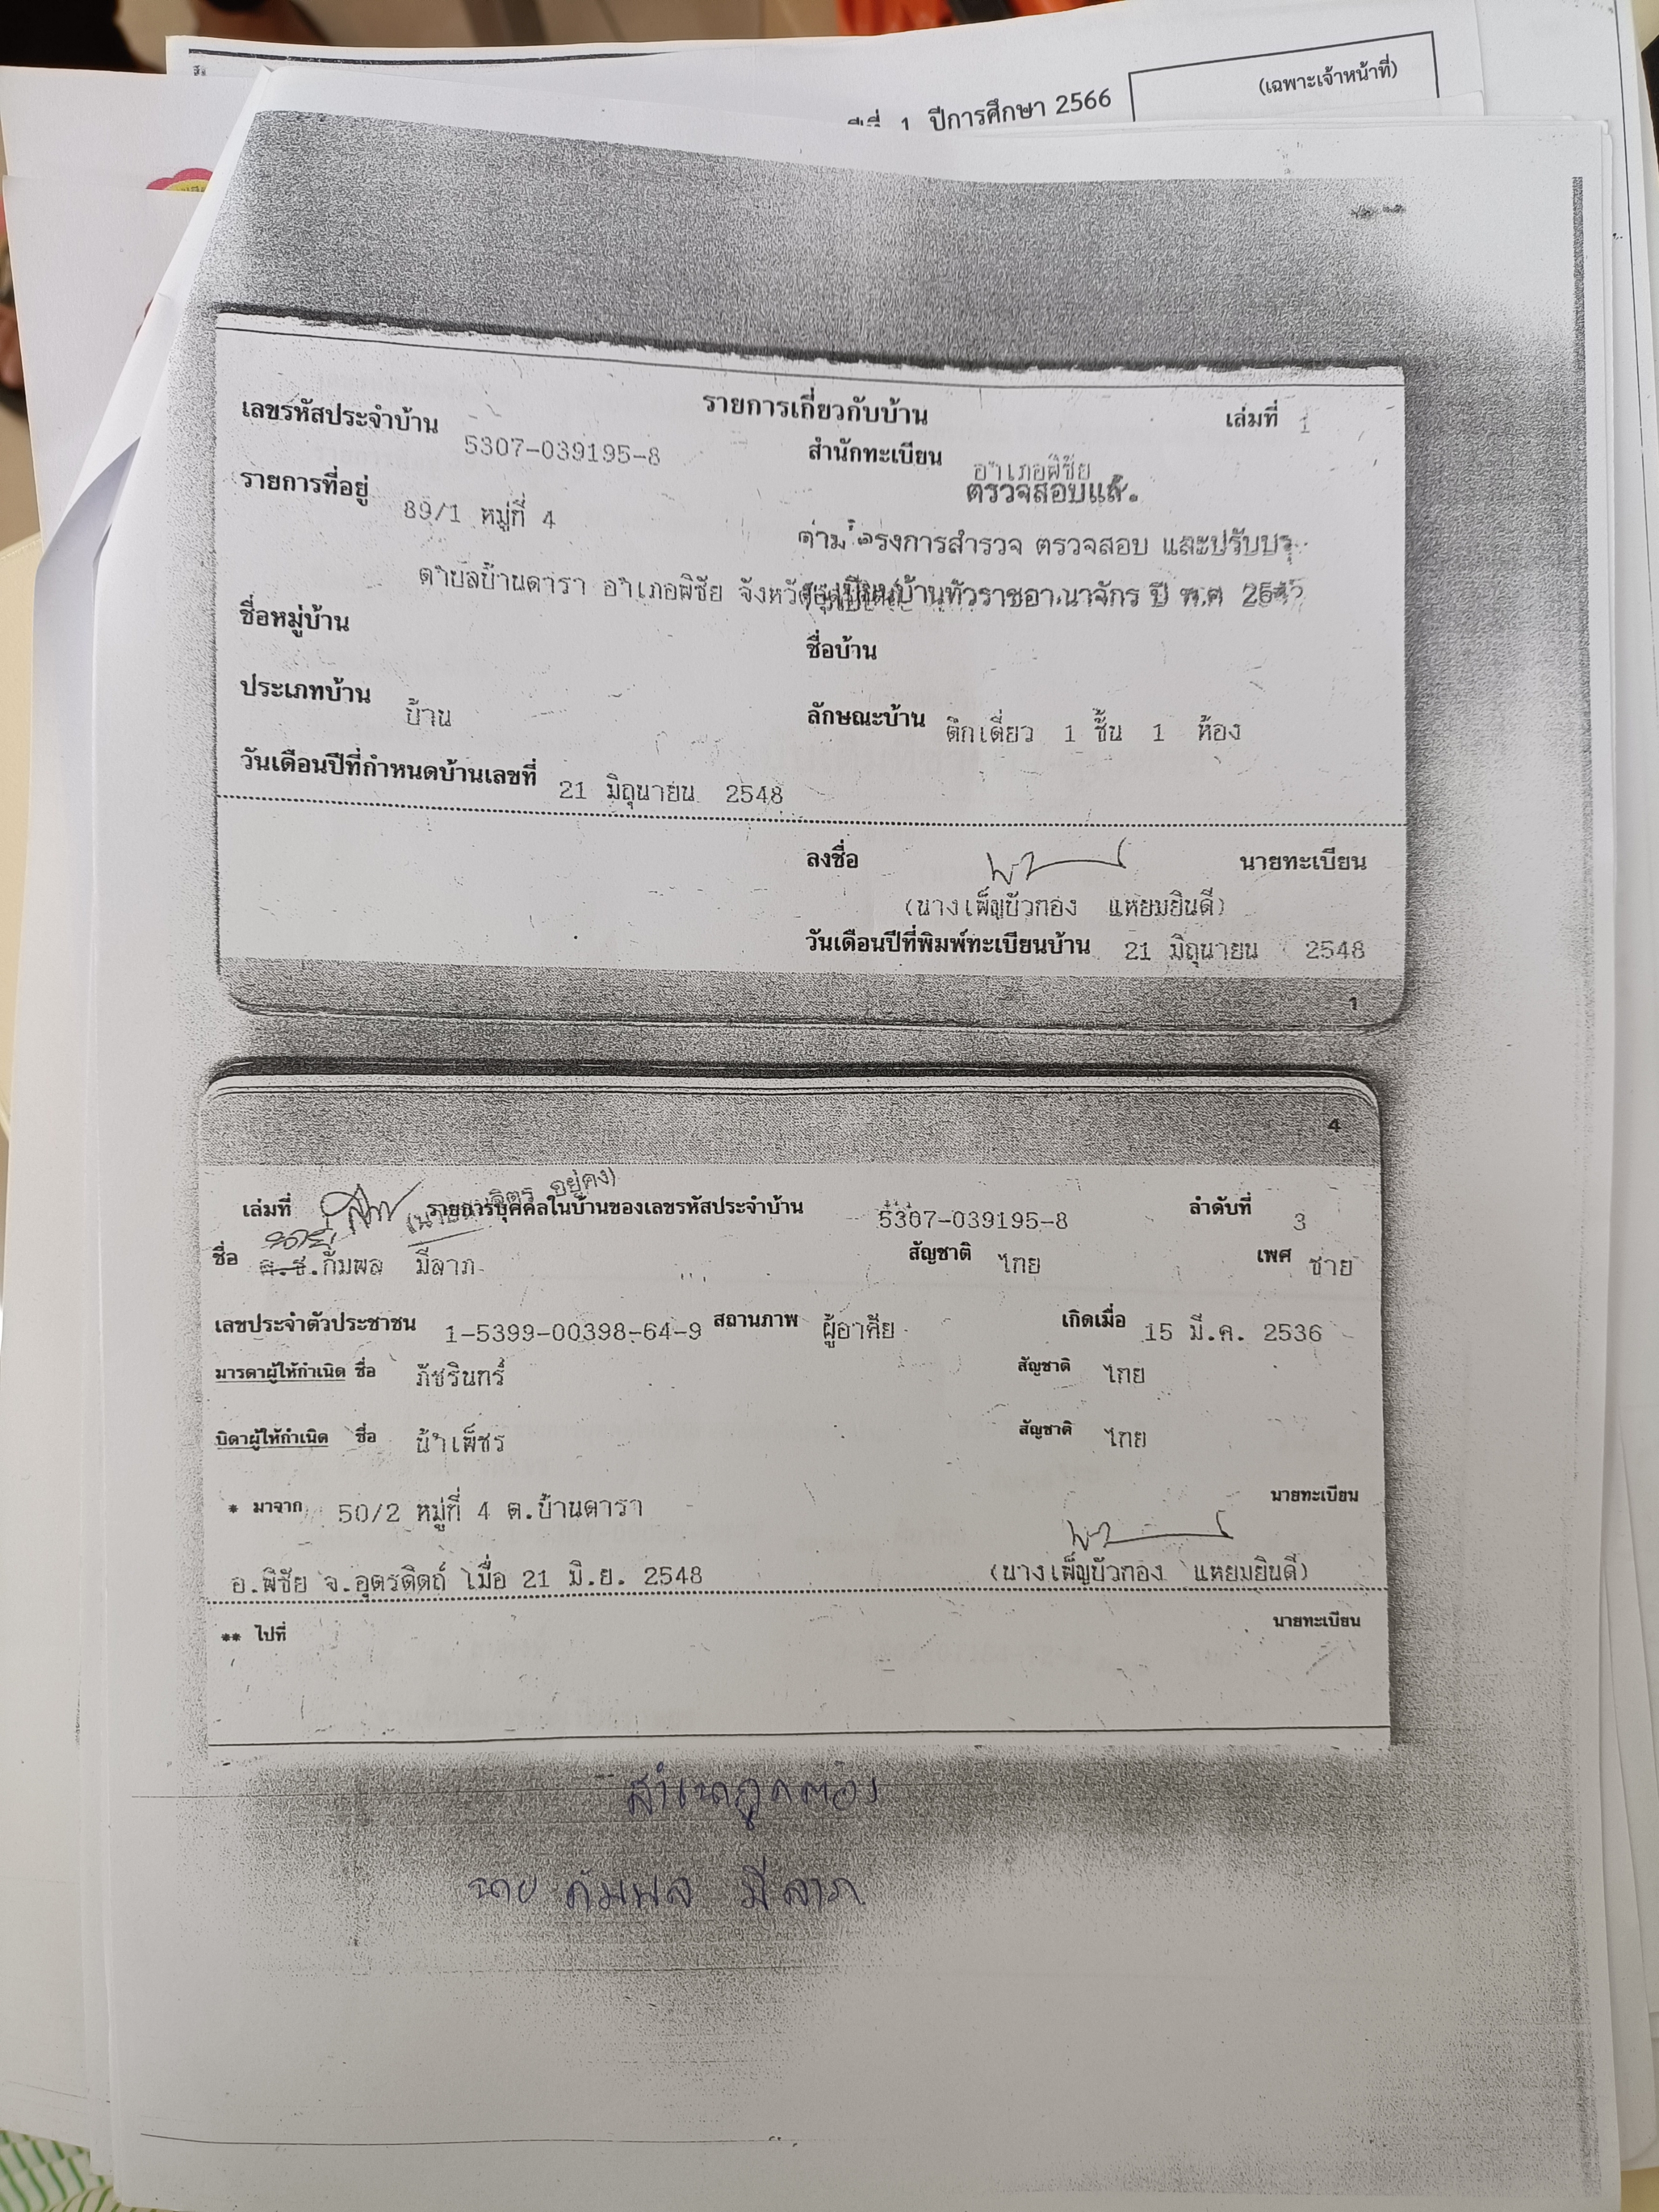 (เฉพาะเจ้าหน้าที่)
ปีที่ 1 ปีการศึกษา 2566
รายการเกี่ยวกับบ้าน เล่มที่ 1
เลขรหัสประจำบ้าน 5307-039195-8 สำนักทะเบียน อำเภอพิชัย
ตรวจสอบแล้ว
รายการที่อยู่ 89/1 หมู่ที่ 4
ตามโครงการสำรวจ ตรวจสอบ และปรับปรุง
ตำบลบ้านดารา อำเภอพิชัย จังหวัดอุตรดิตถ์
ทะเบียนบ้านทั่วราชอาณาจักร ปี พ.ศ 2545
ชื่อหมู่บ้าน ชื่อบ้าน
ประเภทบ้าน บ้าน ลักษณะบ้าน ตึกเดี่ยว 1 ชั้น 1 ห้อง
วันเดือนปีที่กำหนดบ้านเลขที่ 21 มิถุนายน 2548
ลงชื่อ นายทะเบียน
(นางเพ็ญบัวทอง แหยมยินดี)
วันเดือนปีที่พิมพ์ทะเบียนบ้าน 21 มิถุนายน 2548
1
4
เล่มที่ รายการบุคคลในบ้านของเลขรหัสประจำบ้าน 5307-039195-8 ลำดับที่ 3
นาย
ชื่อ ด.ช.กัมพล มีลาภ สัญชาติ ไทย เพศ ชาย
เลขประจำตัวประชาชน 1-5399-00398-64-9 สถานภาพ ผู้อาศัย เกิดเมื่อ 15 มี.ค. 2536
มารดาผู้ให้กำเนิด ชื่อ ภัชรินทร์ สัญชาติ ไทย
บิดาผู้ให้กำเนิด ชื่อ น้ำเพ็ชร สัญชาติ ไทย
* มาจาก 50/2 หมู่ที่ 4 ต.บ้านดารา นายทะเบียน
อ.พิชัย จ.อุตรดิตถ์ เมื่อ 21 มิ.ย. 2548 (นางเพ็ญบัวทอง แหยมยินดี)
** ไปที่ นายทะเบียน
สำเนาถูกต้อง
นาย กัมพล มีลาภ